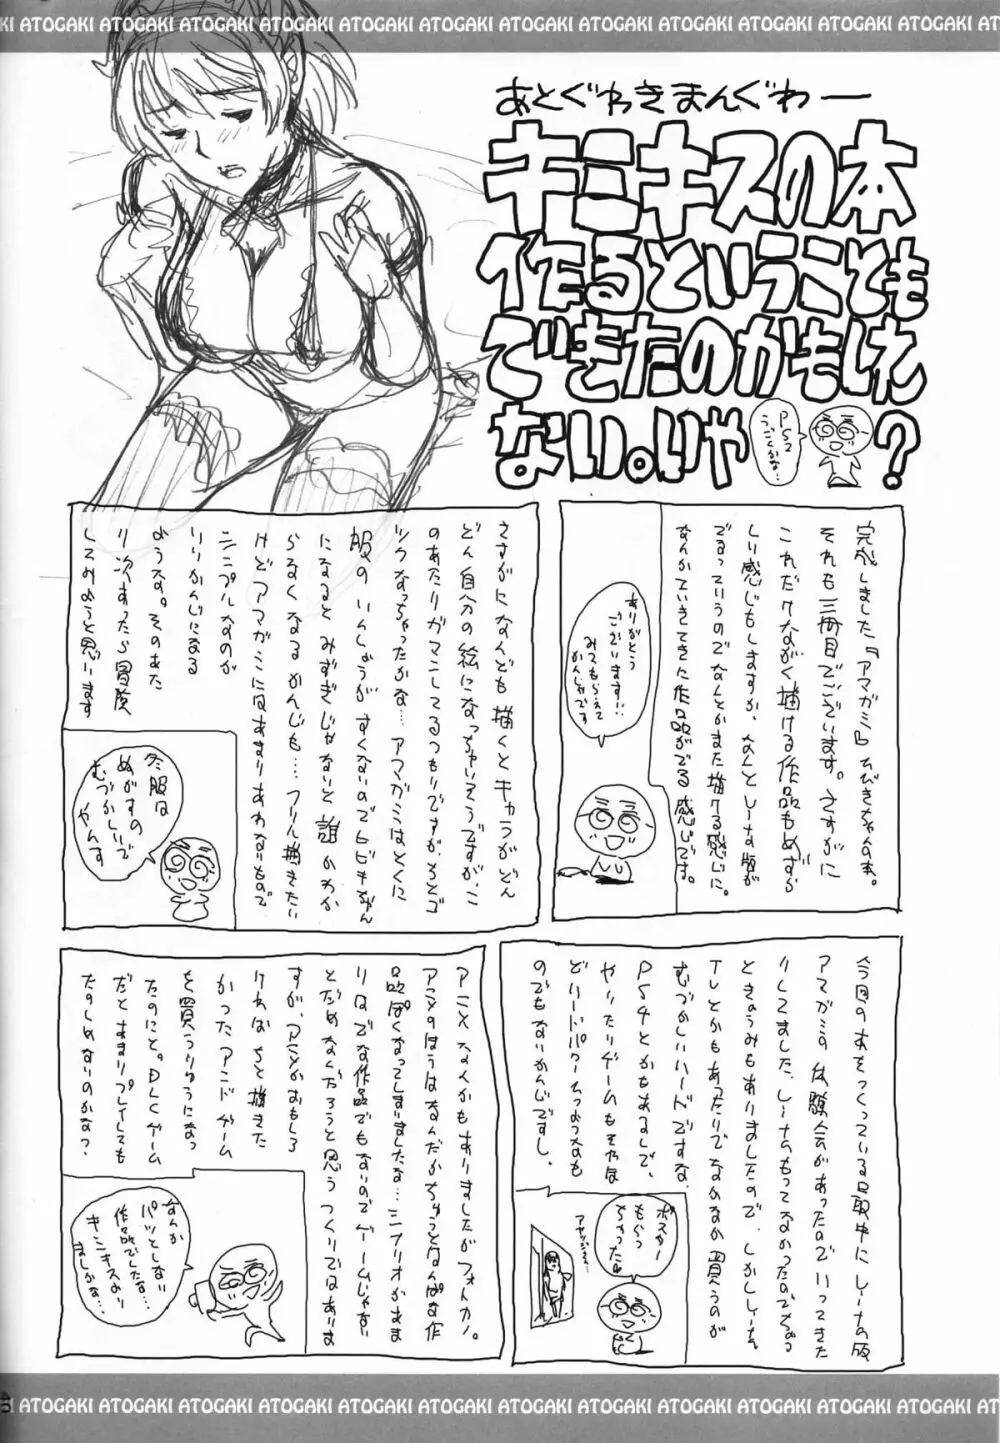 ATOGAKI ATOGAKI ATOGAKI ATOGAKI ATOGAKI ATOGAKI ATOGAKI ATOGAKI ATOGAKI ATOGAKI
あとぐゎきまんぐゎー
キミキスの本
作るということも
できたのかもしれ
ない。いや
PS2
うごくかな…
?
完成しました『アマガミ』ひびきちゃん本。
それも三冊目でございます。さすがに
これだけながく描ける作品もめずら
しい感じもしますが、なんとしーな版が
でるっていうのでなんとかまた描ける感じに。
なんかでいきてきた作品がでる感じです。
ありがとう
ございます!!
みてもらえて
かんしゃです
さすがになんども描くとキャラがどん
どん自分の絵になっちゃいそうですが、こ
のあたりガマンしてるつもりですが、ちとゴ
ツクなっちゃったかな…アマガミはとくに
服のいしょうがすくないのでヒビキちゃん
になるとみずぎじゃないと誰かわか
らなくなるかんじも…フリル描きたい
けどアマガミにはあまりあわないもので
シンプルなのが
いいかんじになる
ような。そのあた
り次あったら冒険
してみようと思います
冬服は
ぬがすの
むづかしいで
やんす
今回の本をつくっている最中にしーなの版
アマガミの体験会があったのでいってきた
りしてました、しーなもってなかったのでちょっ
ときょうみもありましたので、しかししーなも
TVとかもあったりでなかなか買うのが
むづかしいハードですな。
PS4とかもあるしで、
やったりゲームもそれほ
どハードパワーつかうもの
のでもないかんじですし、
ポスター
もらっ
ちゃったわ
アヤツジさん
アニメなんかもありましたがフォトカノ。
アニメのほうはなんだかちょっとなんぱな作
品ぽくなってしまいましたな…シナリオがあま
りはでな作品でもないのでゲームじゃない
とだめなんだろうと思うつくりではありま
すが、アニメがおもしろ
ければちと描きた
かったアンドゲーム
を買うりゆうになっ
たのにと。DLCゲーム
だとあまりプレイしても
たのしめないのかな?
なんか
パッとしない
作品でしたな…
キミキスより
ましかな…
ATOGAKI ATOGAKI ATOGAKI ATOGAKI ATOGAKI ATOGAKI ATOGAKI ATOGAKI ATOGAKI ATOGAKI